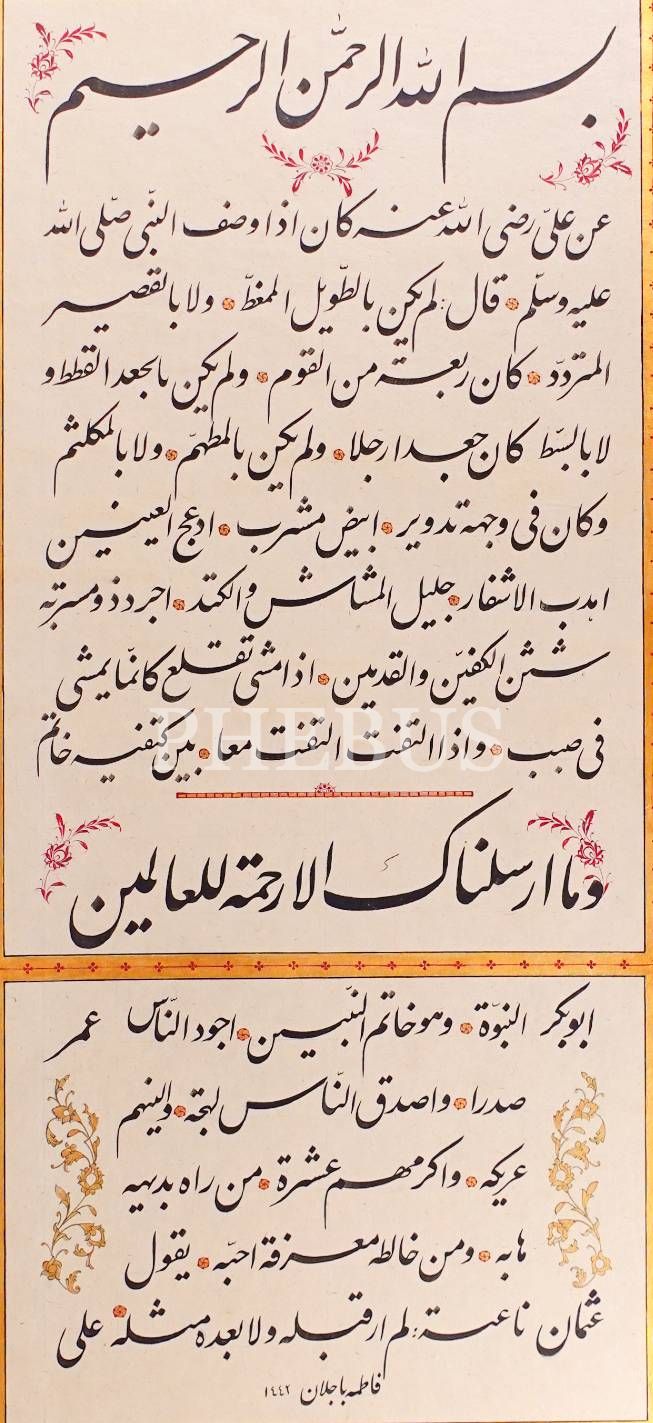 بسم الله الرحمن الرحيم
عن علىّ رضى الله عنه كان اذا وصف النبّى صلّى الله
عليه وسلّم قال: لم يكن بالطّويل الممغّط ولا بالقصير
المتردّد كان ربعة من القوم ولم يكن بالجعد القطط و
لا بالسّبط كان جعدا رجلا ولم يكن بالمطهّم ولا بالمكلثم
وكان فى وجهه تدوير ابيض مشرب ادعج العينين
اهدب الاشفار جليل المشاش والكتد اجرد ذو مسربة
شثن الكفيّن والقدمين اذا مشى تقلع كانّما يمشى
فى صبب واذا التفت التفت معا بين كتفيه خاتم
PHEBUS
وما ارسلناك الا رحمة للعالمين
ابوبكر النبوّة وهو خاتم النّبيين اجود النّاس عمر
صدرا واصدق النّاس لهجة والينهم
عريكه واكرمهم عشرة من راه بديهه
هابه ومن خالطه معرفة احبّه يقول
عثمان ناعته: لم ار قبله ولا بعده مثله على
فاطمه باجلان ١٤٤٢